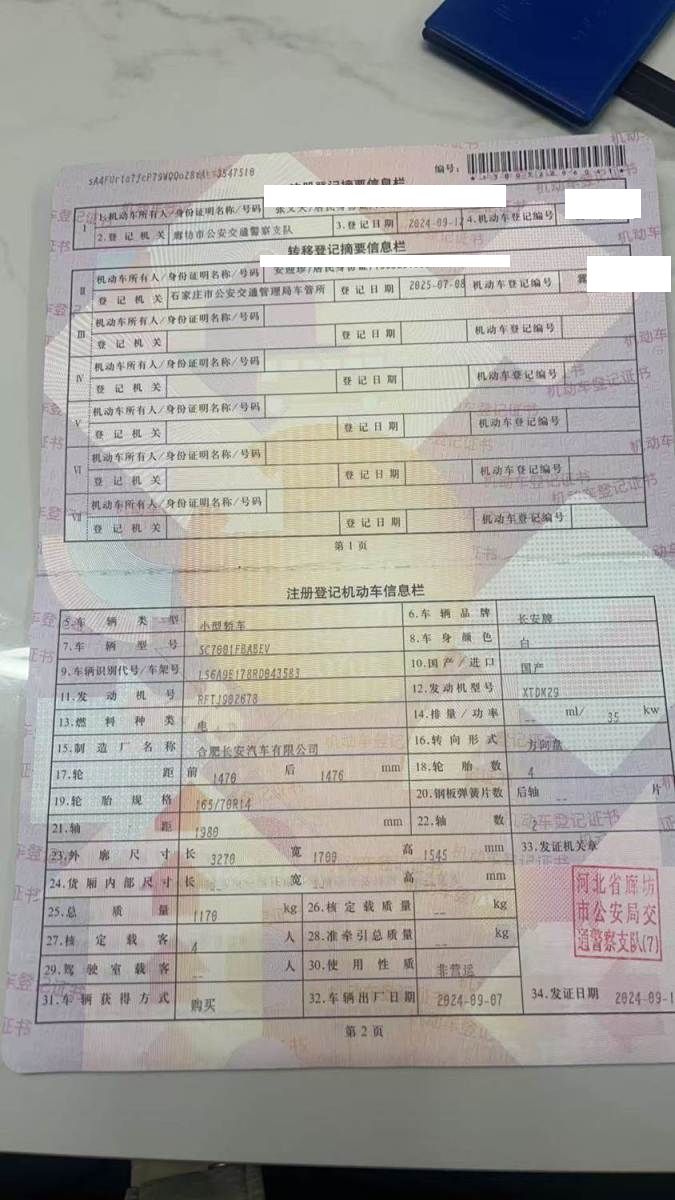 编号：
注册登记摘要信息栏
Ⅰ 1.机动车所有人/身份证明名称/号码
2.登记机关 廊坊市公安交通警察支队 3.登记日期 2024-09-12 4.机动车登记编号
转移登记摘要信息栏
Ⅱ 机动车所有人/身份证明名称/号码
登记机关 石家庄市公安交通管理局车管所 登记日期 2025-07-08 机动车登记编号
Ⅲ 机动车所有人/身份证明名称/号码
登记机关 登记日期 机动车登记编号
Ⅳ 机动车所有人/身份证明名称/号码
登记机关 登记日期 机动车登记编号
Ⅴ 机动车所有人/身份证明名称/号码
登记机关 登记日期 机动车登记编号
Ⅵ 机动车所有人/身份证明名称/号码
登记机关 登记日期 机动车登记编号
Ⅶ 机动车所有人/身份证明名称/号码
登记机关 登记日期 机动车登记编号
第1页
注册登记机动车信息栏
5.车辆类型 小型轿车 6.车辆品牌 长安牌
7.车辆型号 SC7001FBABEV 8.车身颜色 白
9.车辆识别代号/车架号 LS6A9E178RD043583 10.国产/进口 国产
11.发动机号 RFTJ902678 12.发动机型号 XTDM29
13.燃料种类 电 14.排量/功率 -- ml/ 35 kw
15.制造厂名称 合肥长安汽车有限公司 16.转向形式 方向盘
17.轮距 前 1470 后 1476 mm 18.轮胎数 4
19.轮胎规格 165/70R14 20.钢板弹簧片数 后轴 -- 片
21.轴距 1980 mm 22.轴数 2
23.外廓尺寸 长 3270 宽 1700 高 1545 mm 33.发证机关章
24.货厢内部尺寸 长 -- 宽 -- 高 mm
25.总质量 1170 kg 26.核定载质量 -- kg
27.核定载客 4 人 28.准牵引总质量 -- kg
29.驾驶室载客 -- 人 30.使用性质 非营运
河北省廊坊
市公安局交
通警察支队(7)
31.车辆获得方式 购买 32.车辆出厂日期 2024-09-07 34.发证日期 2024-09-1
第2页